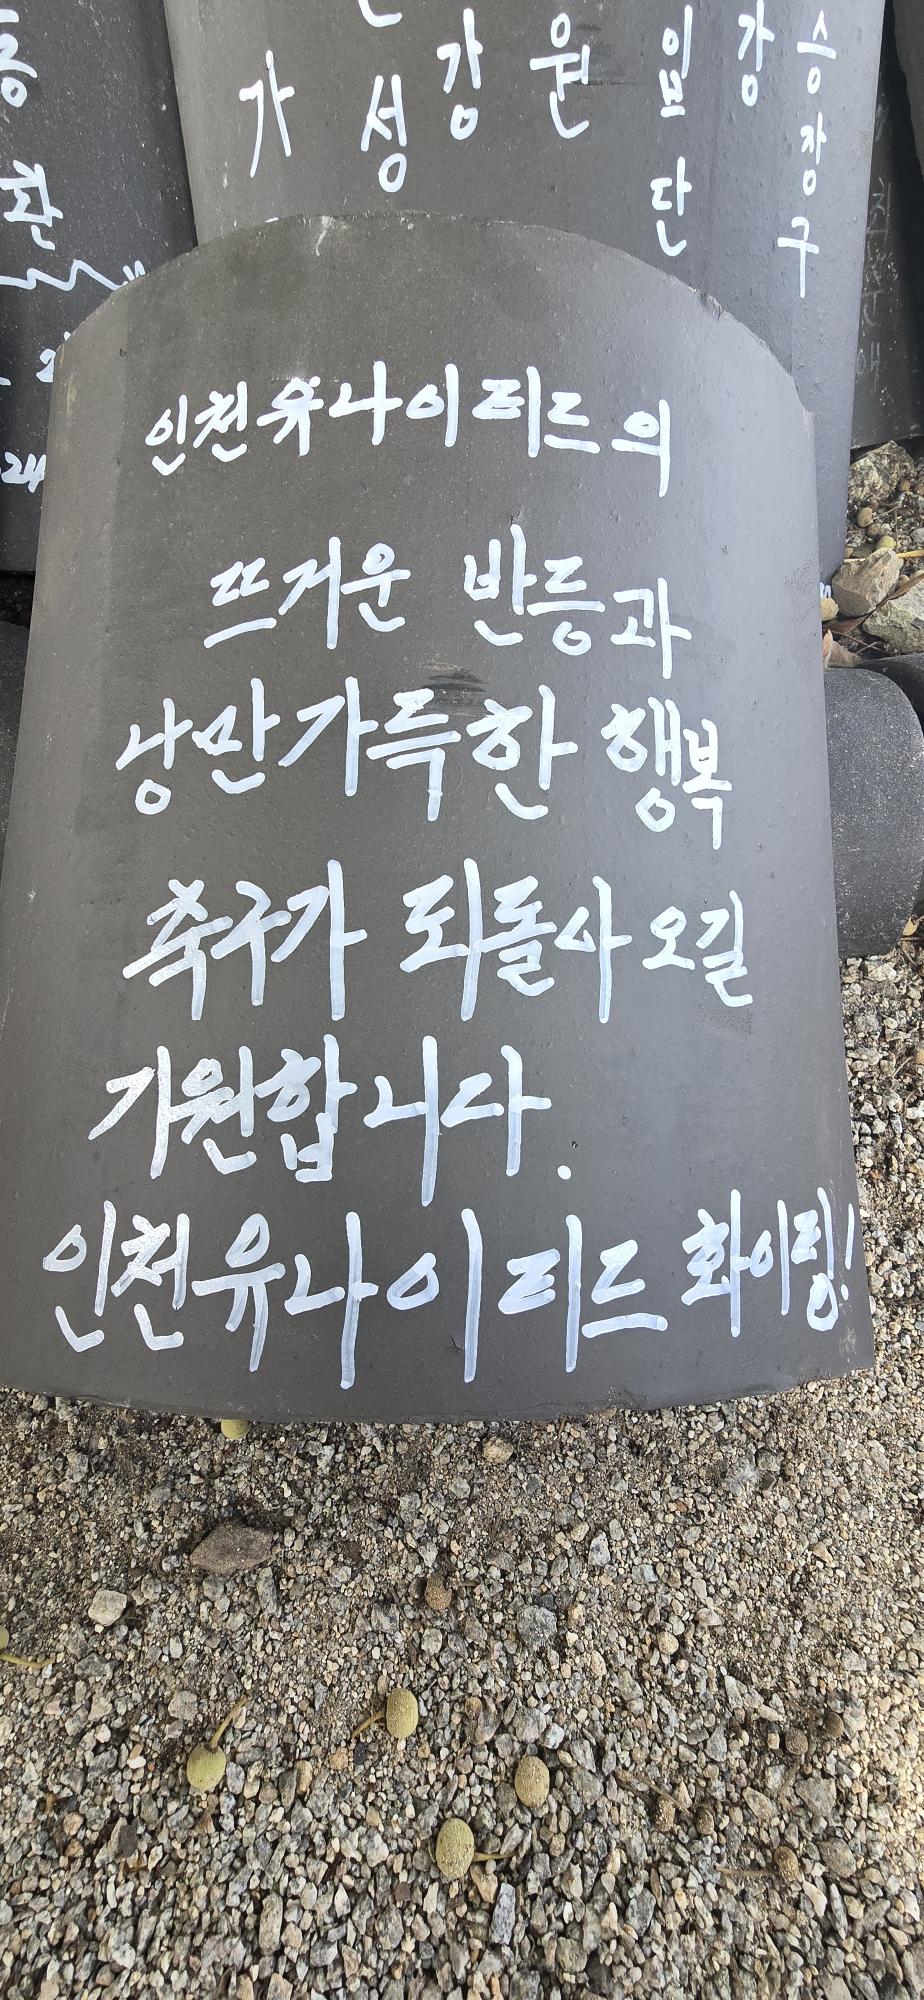 가 성 강 원 임 강 승
단 장
구
환
24
인천유나이티드의
뜨거운 반등과
낭만가득한 행복
축구가 되돌아 오길
기원합니다.
인천유나이티드 화이팅!